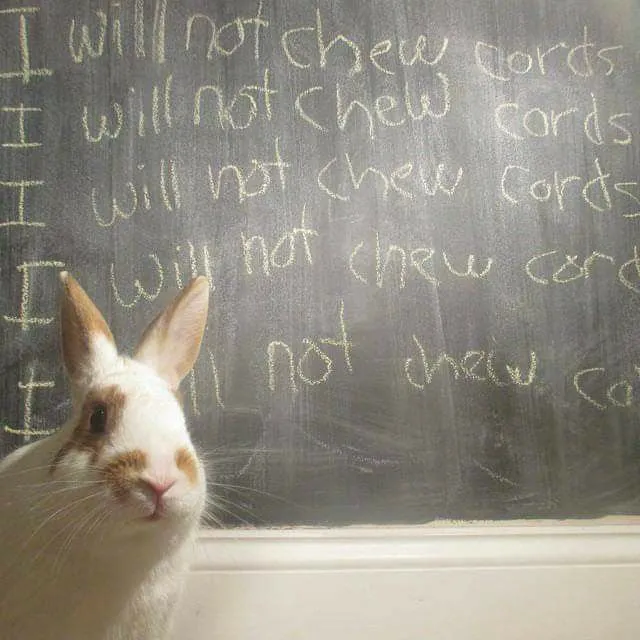 I will not chew cords
I will not chew cords
I will not chew cords
I will not chew cord
I not chew co